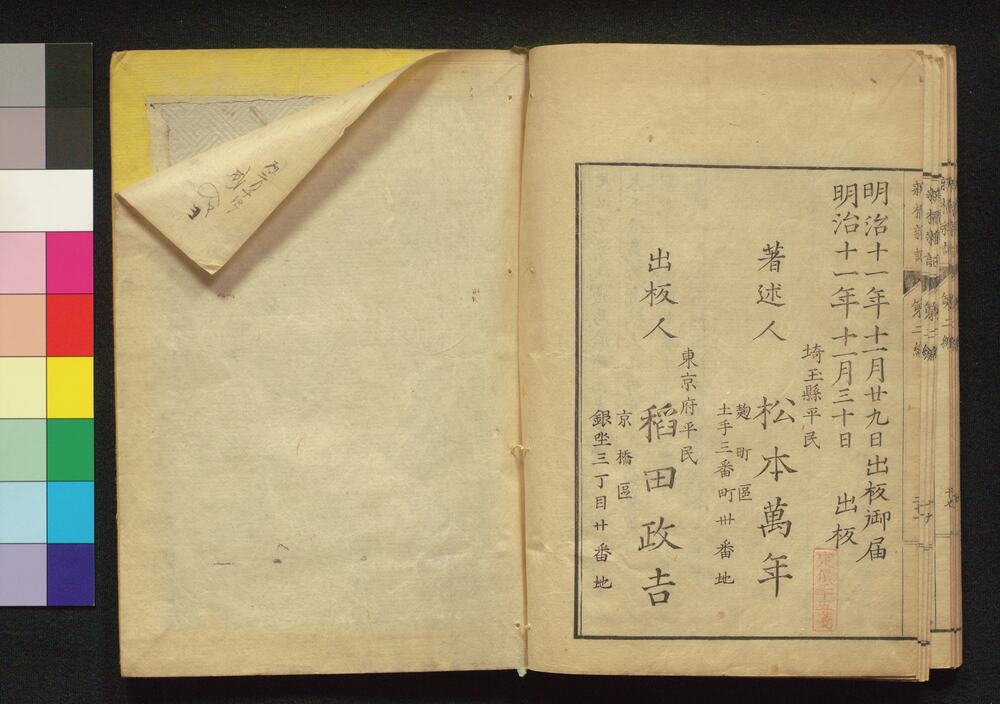 明治十一年十一月廿九日出板御届
明治十一年十一月三十日　出板
埼玉縣平民
著述人　松本萬年
麹町區
土手三番町卅番地
東京府平民
出板人　稻田政吉
京橋區
銀坐三丁目廿番地
定價二十五戔
新橋雜記
第二編